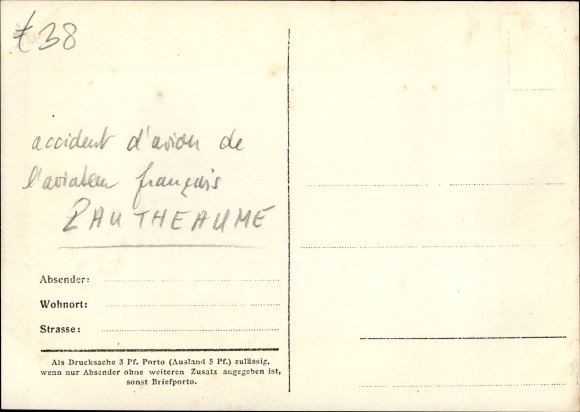 £38
accident d'avion de
l'aviateur français
PAUTHEAUME
Absender:
Wohnort:
Strasse:
Als Drucksache 3 Pf. Porto (Ausland 5 Pf.) zulässig,
wenn nur Absender ohne weiteren Zusatz angegeben ist,
sonst Briefporto.